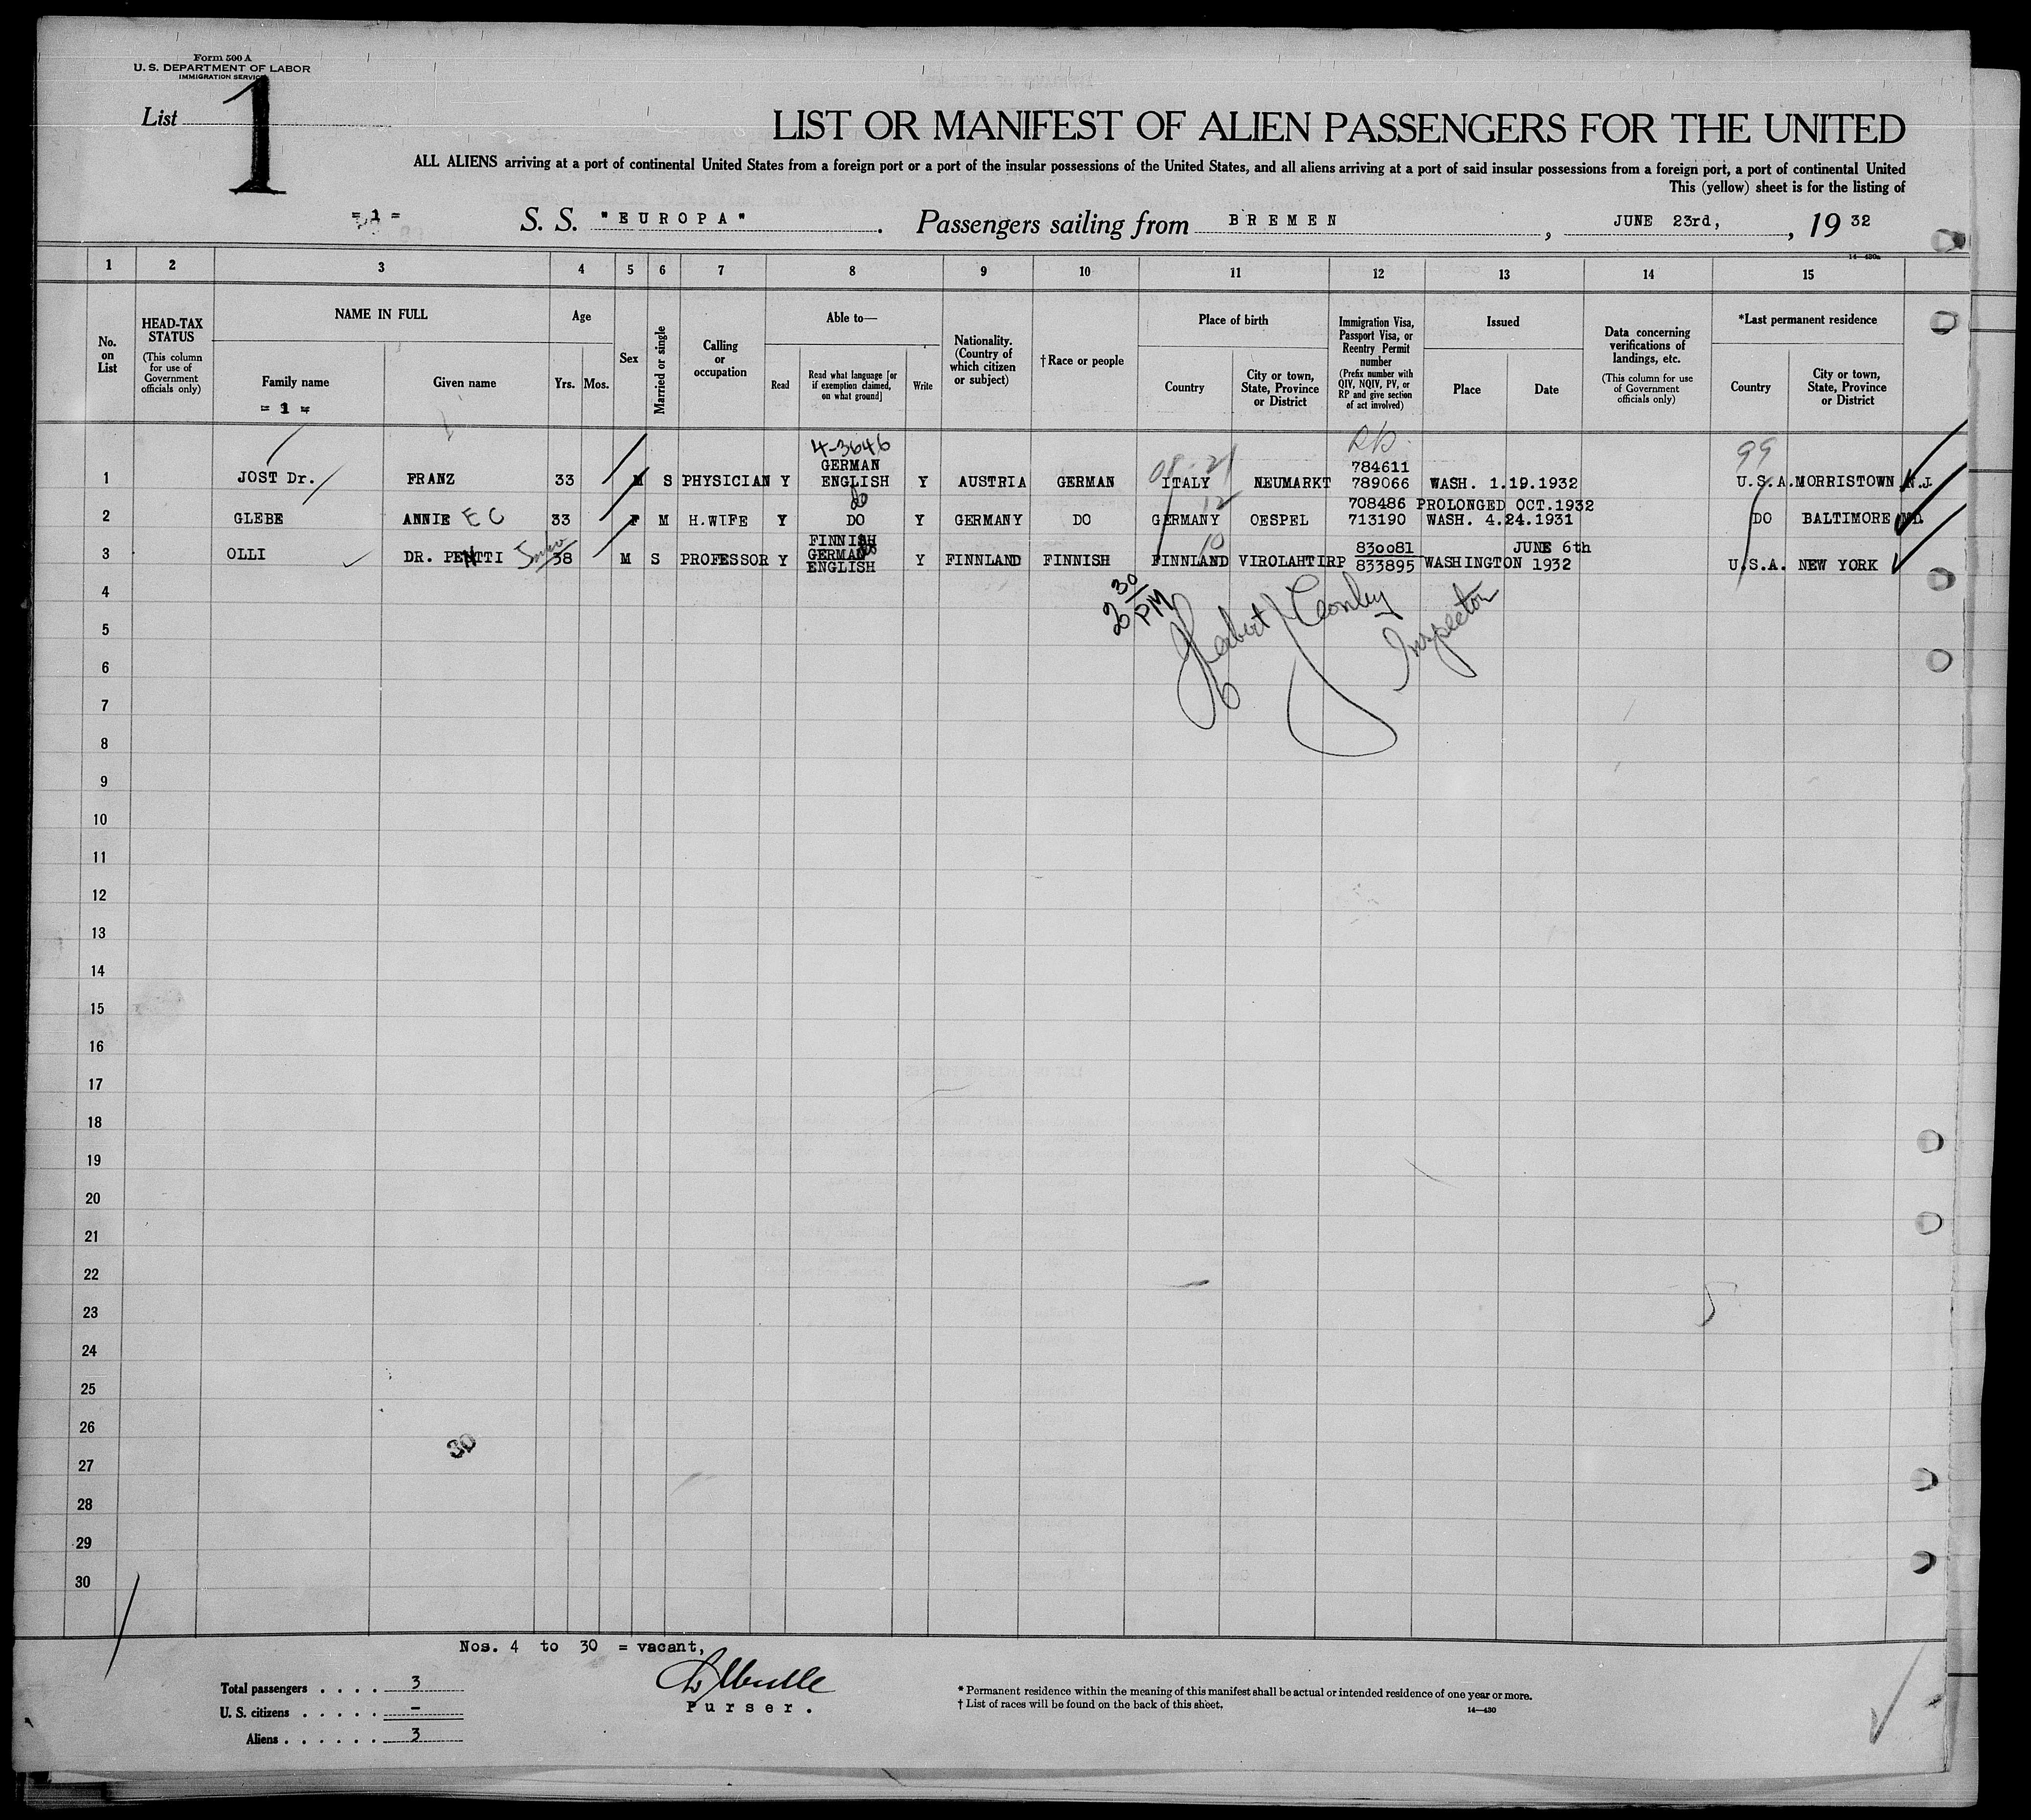 Form 500 A
U. S. DEPARTMENT OF LABOR
IMMIGRATION SERVICE
List 1
LIST OR MANIFEST OF ALIEN PASSENGERS FOR THE UNITED
ALL ALIENS arriving at a port of continental United States from a foreign port or a port of the insular possessions of the United States, and all aliens arriving at a port of said insular possessions from a foreign port, a port of continental United
This (yellow) sheet is for the listing of
= 1 = S. S. "EUROPA". Passengers sailing from BREMEN, JUNE 23rd, , 19 32
14—430a
1 2 3 4 5 6 7 8 9 10 11 12 13 14 15
No. on List
HEAD-TAX STATUS
(This column for use of Government officials only)
NAME IN FULL
Family name
Given name
= 1 =
Age
Yrs. Mos.
Sex
Married or single
Calling or occupation
Able to—
Read
Read what language [or if exemption claimed, on what ground]
Write
Nationality. (Country of which citizen or subject)
†Race or people
Place of birth
Country
City or town, State, Province or District
Immigration Visa, Passport Visa, or Reentry Permit number
(Prefix number with QIV, NQIV, PV, or RP and give section of act involved)
Issued
Place
Date
Data concerning verifications of landings, etc.
(This column for use of Government officials only)
*Last permanent residence
Country
City or town, State, Province or District
4-3646
99
1 JOST Dr. FRANZ 33 M S PHYSICIAN Y GERMAN ENGLISH Y AUSTRIA GERMAN ITALY NEUMARKT 784611 789066 WASH. 1.19.1932 U.S.A. MORRISTOWN N.J.
2 GLEBE ANNIE E C 33 F M H.WIFE Y DO Y GERMANY DO GERMANY OESPEL 708486 713190 PROLONGED OCT.1932 WASH. 4.24.1931 DO BALTIMORE MD.
3 OLLI DR. PENTTI 38 M S PROFESSOR Y FINNISH GERMAN ENGLISH Y FINNLAND FINNISH FINNLAND VIROLAHTIRP 830081 833895 WASHINGTON JUNE 6th 1932 U.S.A. NEW YORK
4
2 30 PM
Inspector
5
6
7
8
9
10
11
12
13
14
15
16
17
18
19
20
21
22
23
24
25
26
30
27
28
29
30
Nos. 4 to 30 = vacant,
Total passengers . . . . 3
U. S. citizens . . . . . —
Aliens . . . . . . 3
Purser.
* Permanent residence within the meaning of this manifest shall be actual or intended residence of one year or more.
† List of races will be found on the back of this sheet.
14—430